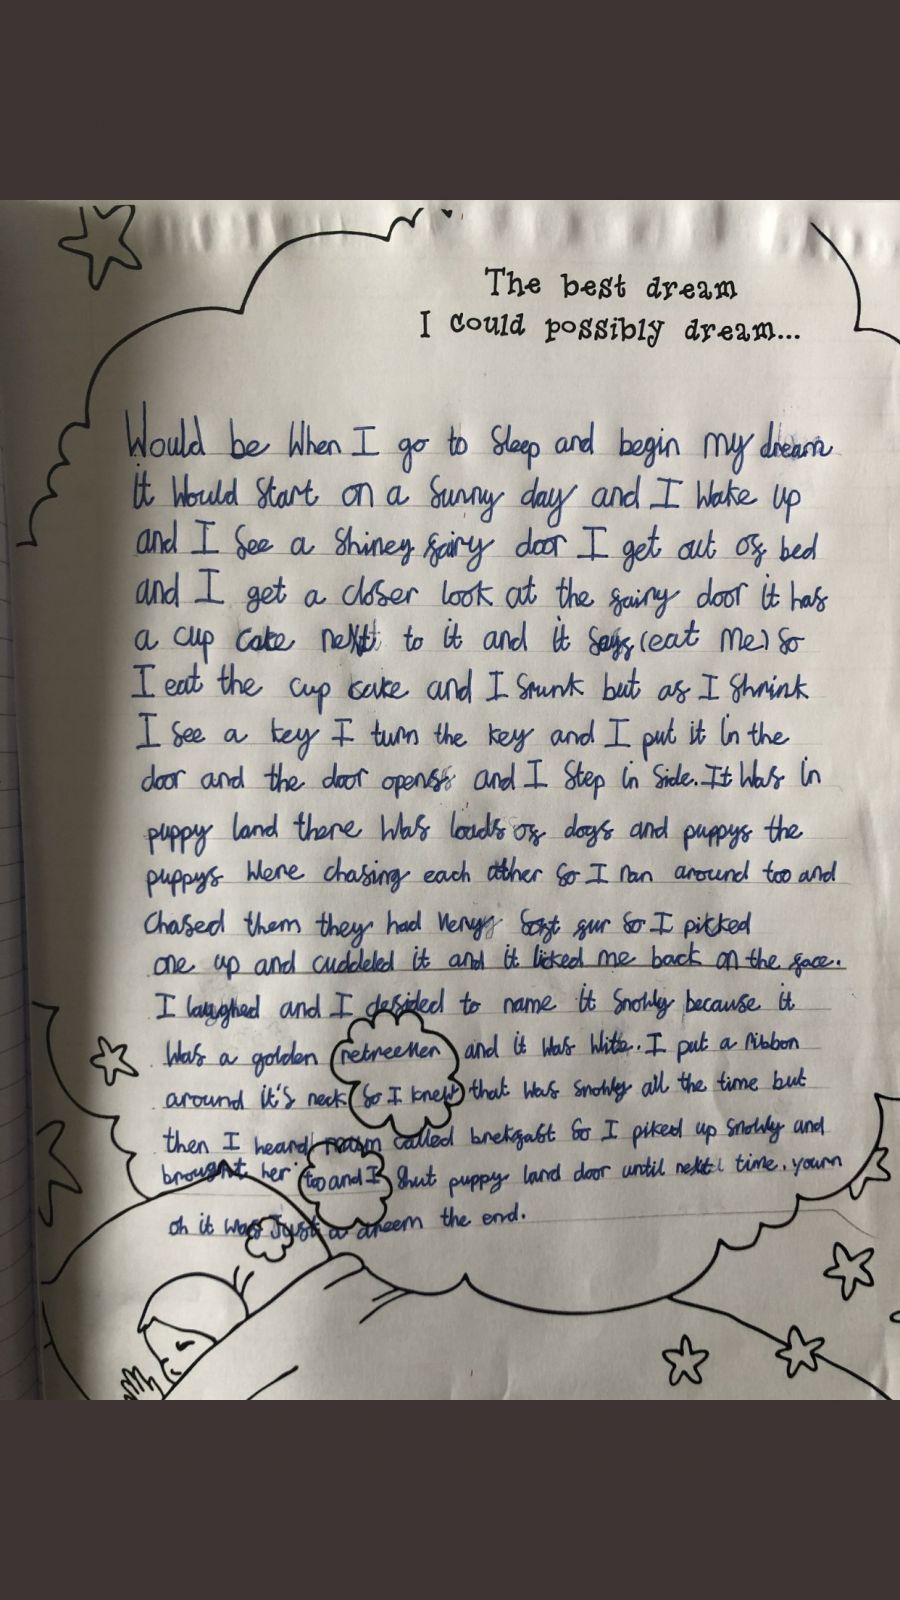 The best dream
I could possibly dream...
Would be when I go to sleep and begin my dream
it would start on a sunny day and I wake up
and I see a shiney fairy door I get out of bed
and I get a closer look at the fairy door it has
a cup cake next to it and it says (eat me) so
I eat the cup cake and I srunk but as I shrink
I see a key I turn the key and I put it in the
door and the door openss and I step in side. It was in
puppy land there was louds of dogs and puppys the
puppys were chasing each other so I ran around too and
chased them they had very soft fur so I picked
one up and cuddeled it and it licked me back on the face.
I laughed and I desided to name it snowly because it
was a golden retreever and it was wite. I put a ribbon
around it's neck so I knew that was snowly all the time but
then I heard mum called brekfast so I piked up snowly and
brought her too and I shut puppy land door until next time. yourn
oh it was Just a dreem the end.